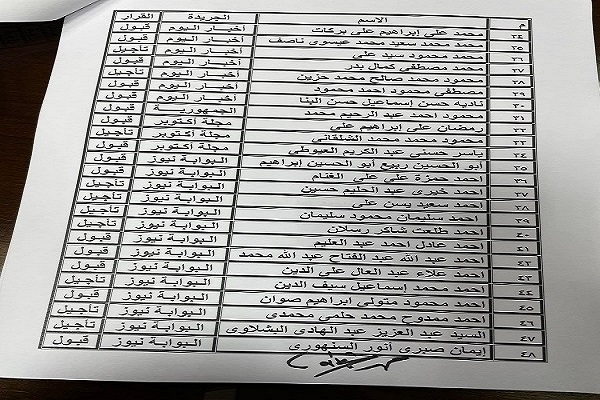 م الاسم الجريدة القرار
٢٤ محمد على إبراهيم على بركات أخبار اليوم قبول
٢٥ محمد محمد سعيد محمد عيسوى ناصف أخبار اليوم قبول
٢٦ محمد محمود سيد على أخبار اليوم تأجيل
٢٧ محمد مصطفى كمال بدر أخبار اليوم قبول
٢٨ محمود محمد صالح محمد حزين أخبار اليوم تأجيل
٢٩ مصطفى محمود احمد محمود أخبار اليوم قبول
٣٠ نادية حسن إسماعيل حسن البنا أخبار اليوم قبول
٣١ محمود احمد عبد الرحيم محمد الجمهورية قبول
٣٢ رمضان على إبراهيم على مجلة أكتوبر قبول
٣٣ محمود محمد محمد الشلقانى مجلة أكتوبر تأجيل
٣٤ ياسر حسنى عبد الكريم العيوطى مجلة أكتوبر قبول
٣٥ أبو الحسين ربيع أبو الحسين إبراهيم البوابة نيوز قبول
٣٦ احمد حمزة على على الغنام البوابة نيوز قبول
٣٧ احمد خيرى عبد الحليم حسين البوابة نيوز تأجيل
٣٨ احمد سعيد يسن على البوابة نيوز تأجيل
٣٩ احمد سليمان محمود سليمان البوابة نيوز تأجيل
٤٠ احمد طلعت شاكر رسلان البوابة نيوز قبول
٤١ احمد عادل احمد عبد العليم البوابة نيوز تأجيل
٤٢ احمد عبد الله عبد الفتاح عبد الله محمد البوابة نيوز قبول
٤٣ احمد علاء عبد العال على الدين البوابة نيوز قبول
٤٤ احمد محمد إسماعيل سيف الدين البوابة نيوز تأجيل
٤٥ احمد محمود متولى إبراهيم صوان البوابة نيوز قبول
٤٦ احمد ممدوح محمد حلمى محمدى البوابة نيوز تأجيل
٤٧ السيد عبد العزيز عبد الهادى البشلاوى البوابة نيوز تأجيل
٤٨ إيمان صبرى أنور السنهورى البوابة نيوز قبول